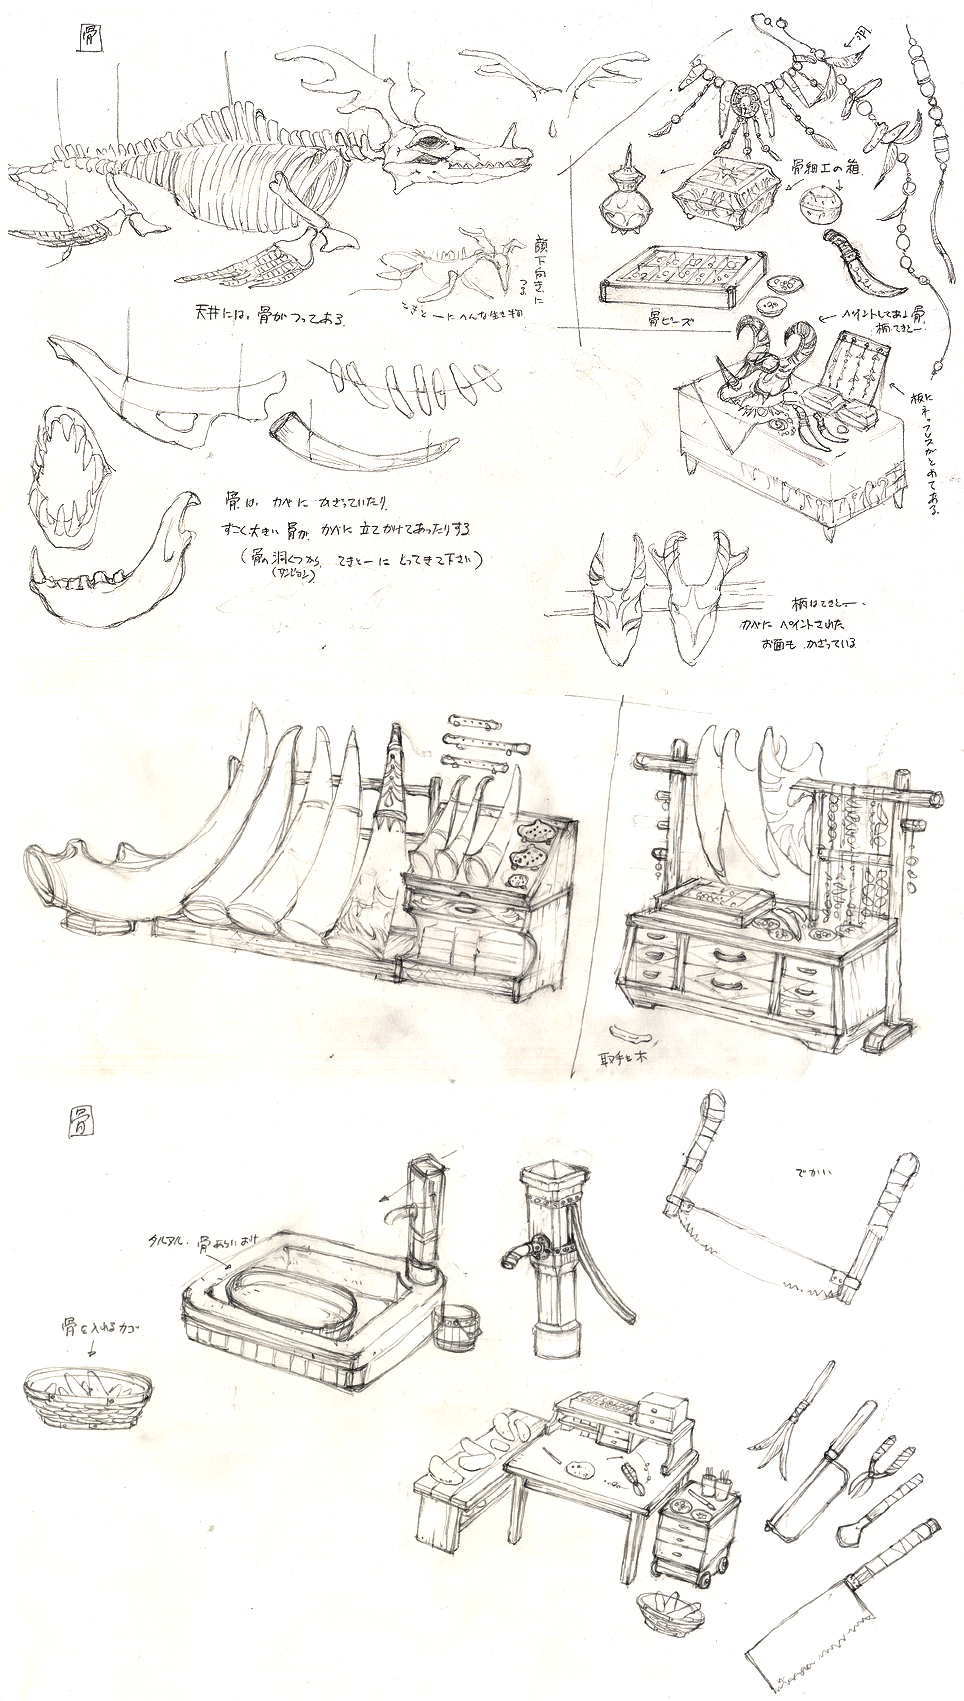 骨
羽
骨細工の箱
顔下向きに
つる
てきとーにへんな生き物
天井には、骨がつってある
骨ビーズ
ペイントしてある骨
柄てきとー
板に
ネックレスがとめてある。
骨は、かべに かざっていたり、
すごく大きい 骨が、かべに 立てかけてあったりする
(骨の洞くつから、てきとーに とってきて下さい)
(ダンジョン)
柄はてきとー。
かべに ペイントされた
お面も かざっている
取手も木
骨
でかい
骨あらいおけ
骨を入れるカゴ